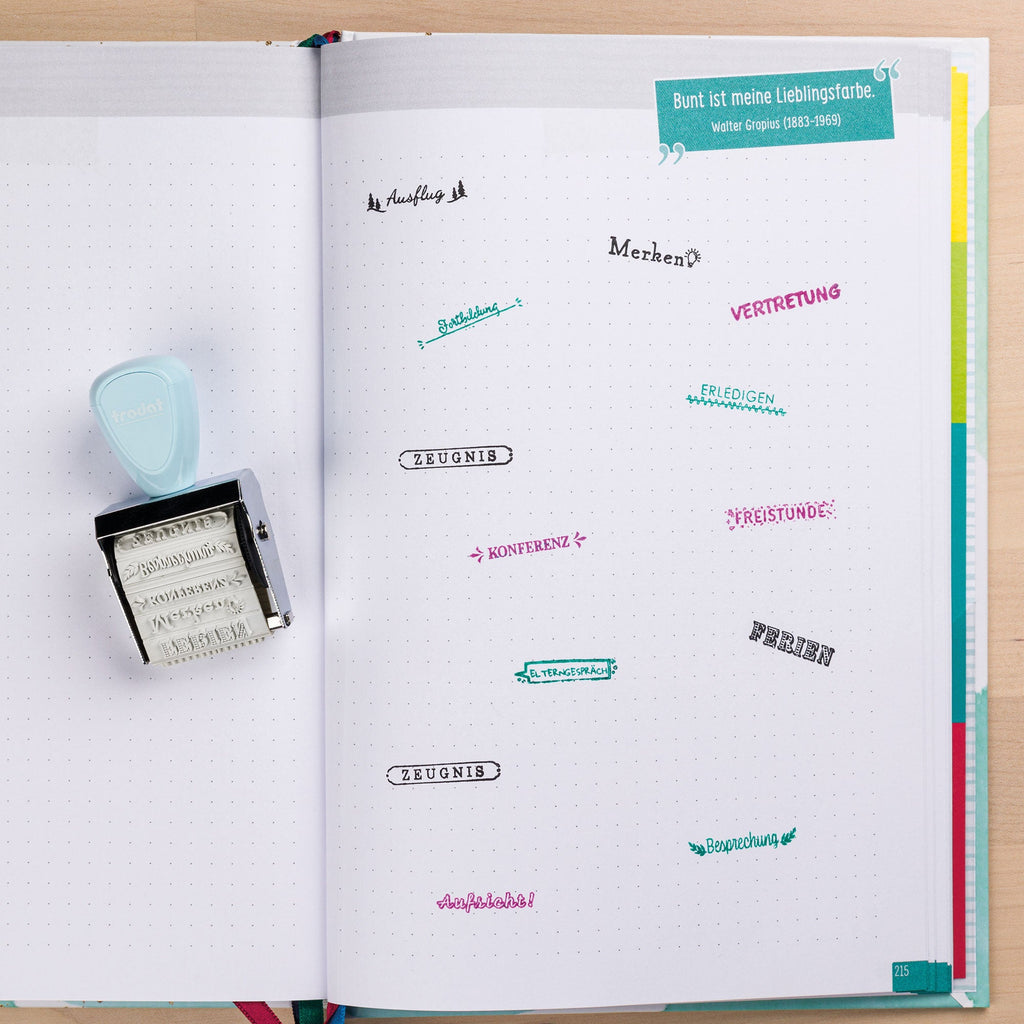 Bunt ist meine Lieblingsfarbe.
Walter Gropius (1883-1969)
Ausflug
Merken
VERTRETUNG
Fortbildung
ERLEDIGEN
ZEUGNIS
FREISTUNDE
KONFERENZ
FERIEN
ELTERNGESPRÄCH
ZEUGNIS
Besprechung
Aufsicht!
215
trodat
ZEUGNIS
Besprechung
KONFERENZ
Merken
FERIEN